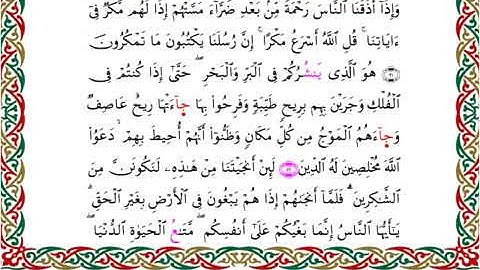 وَإِذَآ أَذَقْنَا ٱلنَّاسَ رَحْمَةً مِّنۢ بَعْدِ ضَرَّآءَ مَسَّتْهُمْ إِذَا لَهُم مَّكْرٌ فِىٓ
ءَايَاتِنَا ۚ قُلِ ٱللَّهُ أَسْرَعُ مَكْرًا ۚ إِنَّ رُسُلَنَا يَكْتُبُونَ مَا تَمْكُرُونَ
هُوَ ٱلَّذِى يَنشُرُكُمْ فِى ٱلْبَرِّ وَٱلْبَحْرِ ۖ حَتَّىٰٓ إِذَا كُنتُمْ فِى
ٱلْفُلْكِ وَجَرَيْنَ بِهِم بِرِيحٍ طَيِّبَةٍ وَفَرِحُوا۟ بِهَا جَآءَتْهَا رِيحٌ عَاصِفٌ
وَجَآءَهُمُ ٱلْمَوْجُ مِن كُلِّ مَكَانٍ وَظَنُّوٓا۟ أَنَّهُمْ أُحِيطَ بِهِمْ ۙ دَعَوُا۟
ٱللَّهَ مُخْلِصِينَ لَهُ ٱلدِّينَ لَئِنْ أَنجَيْتَنَا مِنْ هَـٰذِهِۦ لَنَكُونَنَّ مِنَ
ٱلشَّـٰكِرِينَ فَلَمَّآ أَنجَىٰهُمْ إِذَا هُمْ يَبْغُونَ فِى ٱلْأَرْضِ بِغَيْرِ ٱلْحَقِّ ۗ
يَـٰٓأَيُّهَا ٱلنَّاسُ إِنَّمَا بَغْيُكُمْ عَلَىٰٓ أَنفُسِكُم ۖ مَّتَـٰعُ ٱلْحَيَوٰةِ ٱلدُّنْيَا ۖ